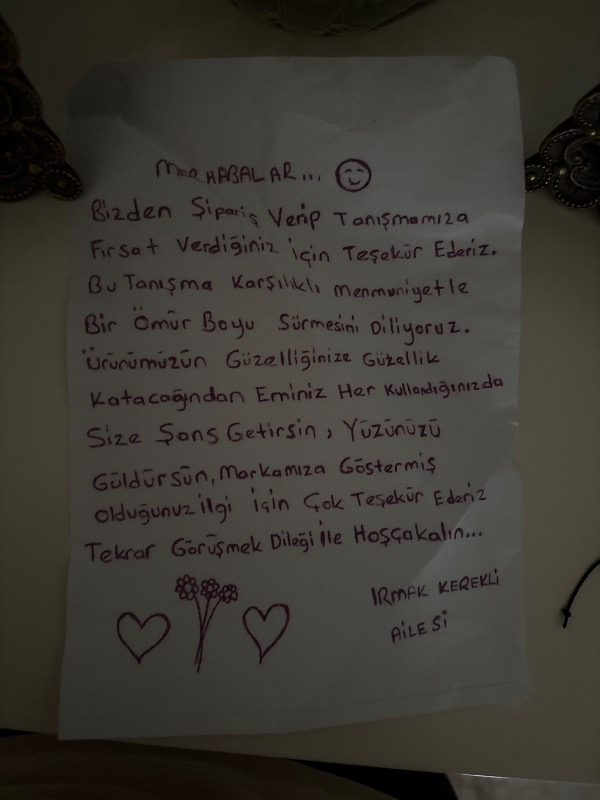 MERHABALAR...
Bizden Sipariş Verip Tanışmamıza
Fırsat Verdiğiniz için Teşekür Ederiz.
Bu Tanışma Karşılıklı menmuniyetle
Bir Ömür Boyu Sürmesini Diliyoruz.
Ürürümüzün Güzelliğinize Güzellik
Katacağından Eminiz Her Kullandığınızda
Size Şans Getirsin, Yüzünüzü
Güldürsün, Markamıza Göstermiş
olduğunuz ilgi için Çok Teşekür Ederiz
Tekrar Görüşmek Dileği ile Hoşçakalın...
IRMAK KEREKLİ
AİLESİ